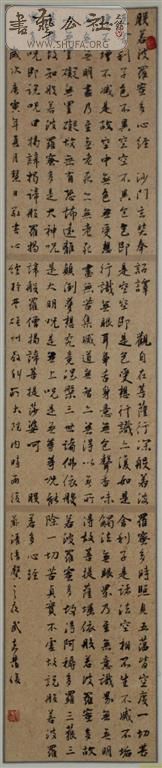 書畫公社
WWW.SHUFA.ORG
般若波羅蜜多心經 沙門玄奘奉詔譯 觀自在菩薩行深般若波羅蜜多時照見五蘊皆空度一切
苦厄舍利子色不異空空不異色色即是空空即是色受想行識亦復如是舍利子是諸法空相不生不滅不垢
不淨不增不減是故空中無色無受想行識無眼耳鼻舌身意無色聲香味觸法無眼界乃至無意識界無無明
亦無無明盡乃至無老死亦無老死盡無苦集滅道無智亦無得以無所得故菩提薩埵依般若波羅蜜多故
心無罣礙無罣礙故無有恐怖遠離顛倒夢想究竟涅槃三世諸佛依般若波羅蜜多故得阿耨多羅三藐三
菩提故知般若波羅蜜多是大神呪是大明呪是無上呪是無等等呪能除一切苦真實不虛故說般若波羅
蜜多呪即說呪曰揭諦揭諦般羅揭諦般羅僧揭諦菩提莎婆呵 般若多心經
歲次庚寅年夏月 敬書心經於 大院内時雨後